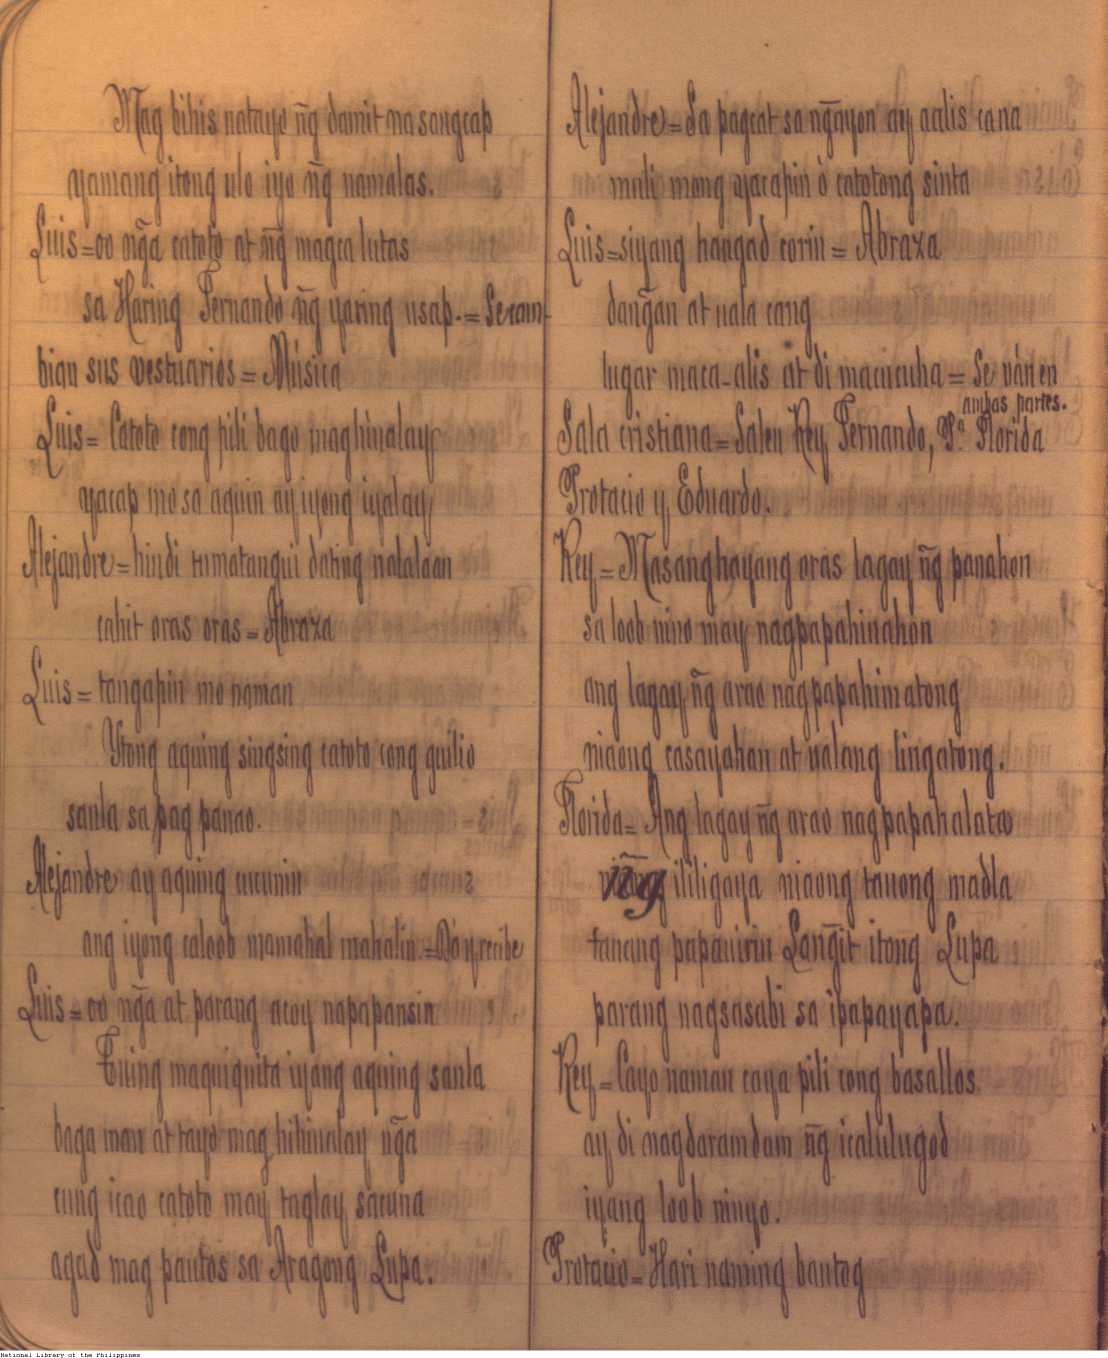 Mag bihis natayo n̄g damit na sangcap
yamang itong ulo iyo n̄g namalas.
Luis=oo n̄ga catoto at n̄g magca lutas
sa Haring Fernando n̄g yaring usap.=Se cam-
bian sus vestuarios = Música
Luis= Catoto cong pili bago maghiualay
yacap mo sa aquin ay iyong iyalay
Alejandre=hindi tumatangui dating natalaan
cahit oras oras = Abraza
Luis = tangapin mo naman
Ytong aquing singsing catoto cong guilio
sanla sa pag panao.
Alejandre ay aquing cucunin
ang iyong caloob mamahal mahalin.=Da y recibe
Luis=oo n̄ga at parang acoy napapansin
Tuing maquiquita iyang aquing sanla
baga man at tayo mag hihiualay n̄ga
cung icao catoto may taglay sacuna
agad mag pautos sa Aragong Lupa.
Alejandre=Sa pagcat sa n̄gayon ay aalis cana
muli mong yacapin ò catotong sinta
Luis=siyang hangad corin = Abraza
dan̄gan at uala cang
lugar maca-alis at di macucuha = Se ván en
ambas partes.
Sala cristiana=Salen Rey Fernando, Pª. Florida
Protacio y Eduardo.
Rey=Masanghayang oras lagay n̄g panahon
sa loob nino may nagpapahinahon
ang lagay n̄g arao nagpapahimatong
niaong casayahan at ualang lingatong.
Florida= Ang lagay n̄g arao nagpapahalata
n̄g ililigaya niaong tauong madla
tanang papauirin Lan̄git itong Lupa
parang nagsasabi sa ipapayapa.
Rey=Cayo naman caya pili cong basallos
ay di nagdaramdam n̄g icalulugod
iyang loob ninyo.
Protacio=Hari naming bantog
National Library of the Philippines